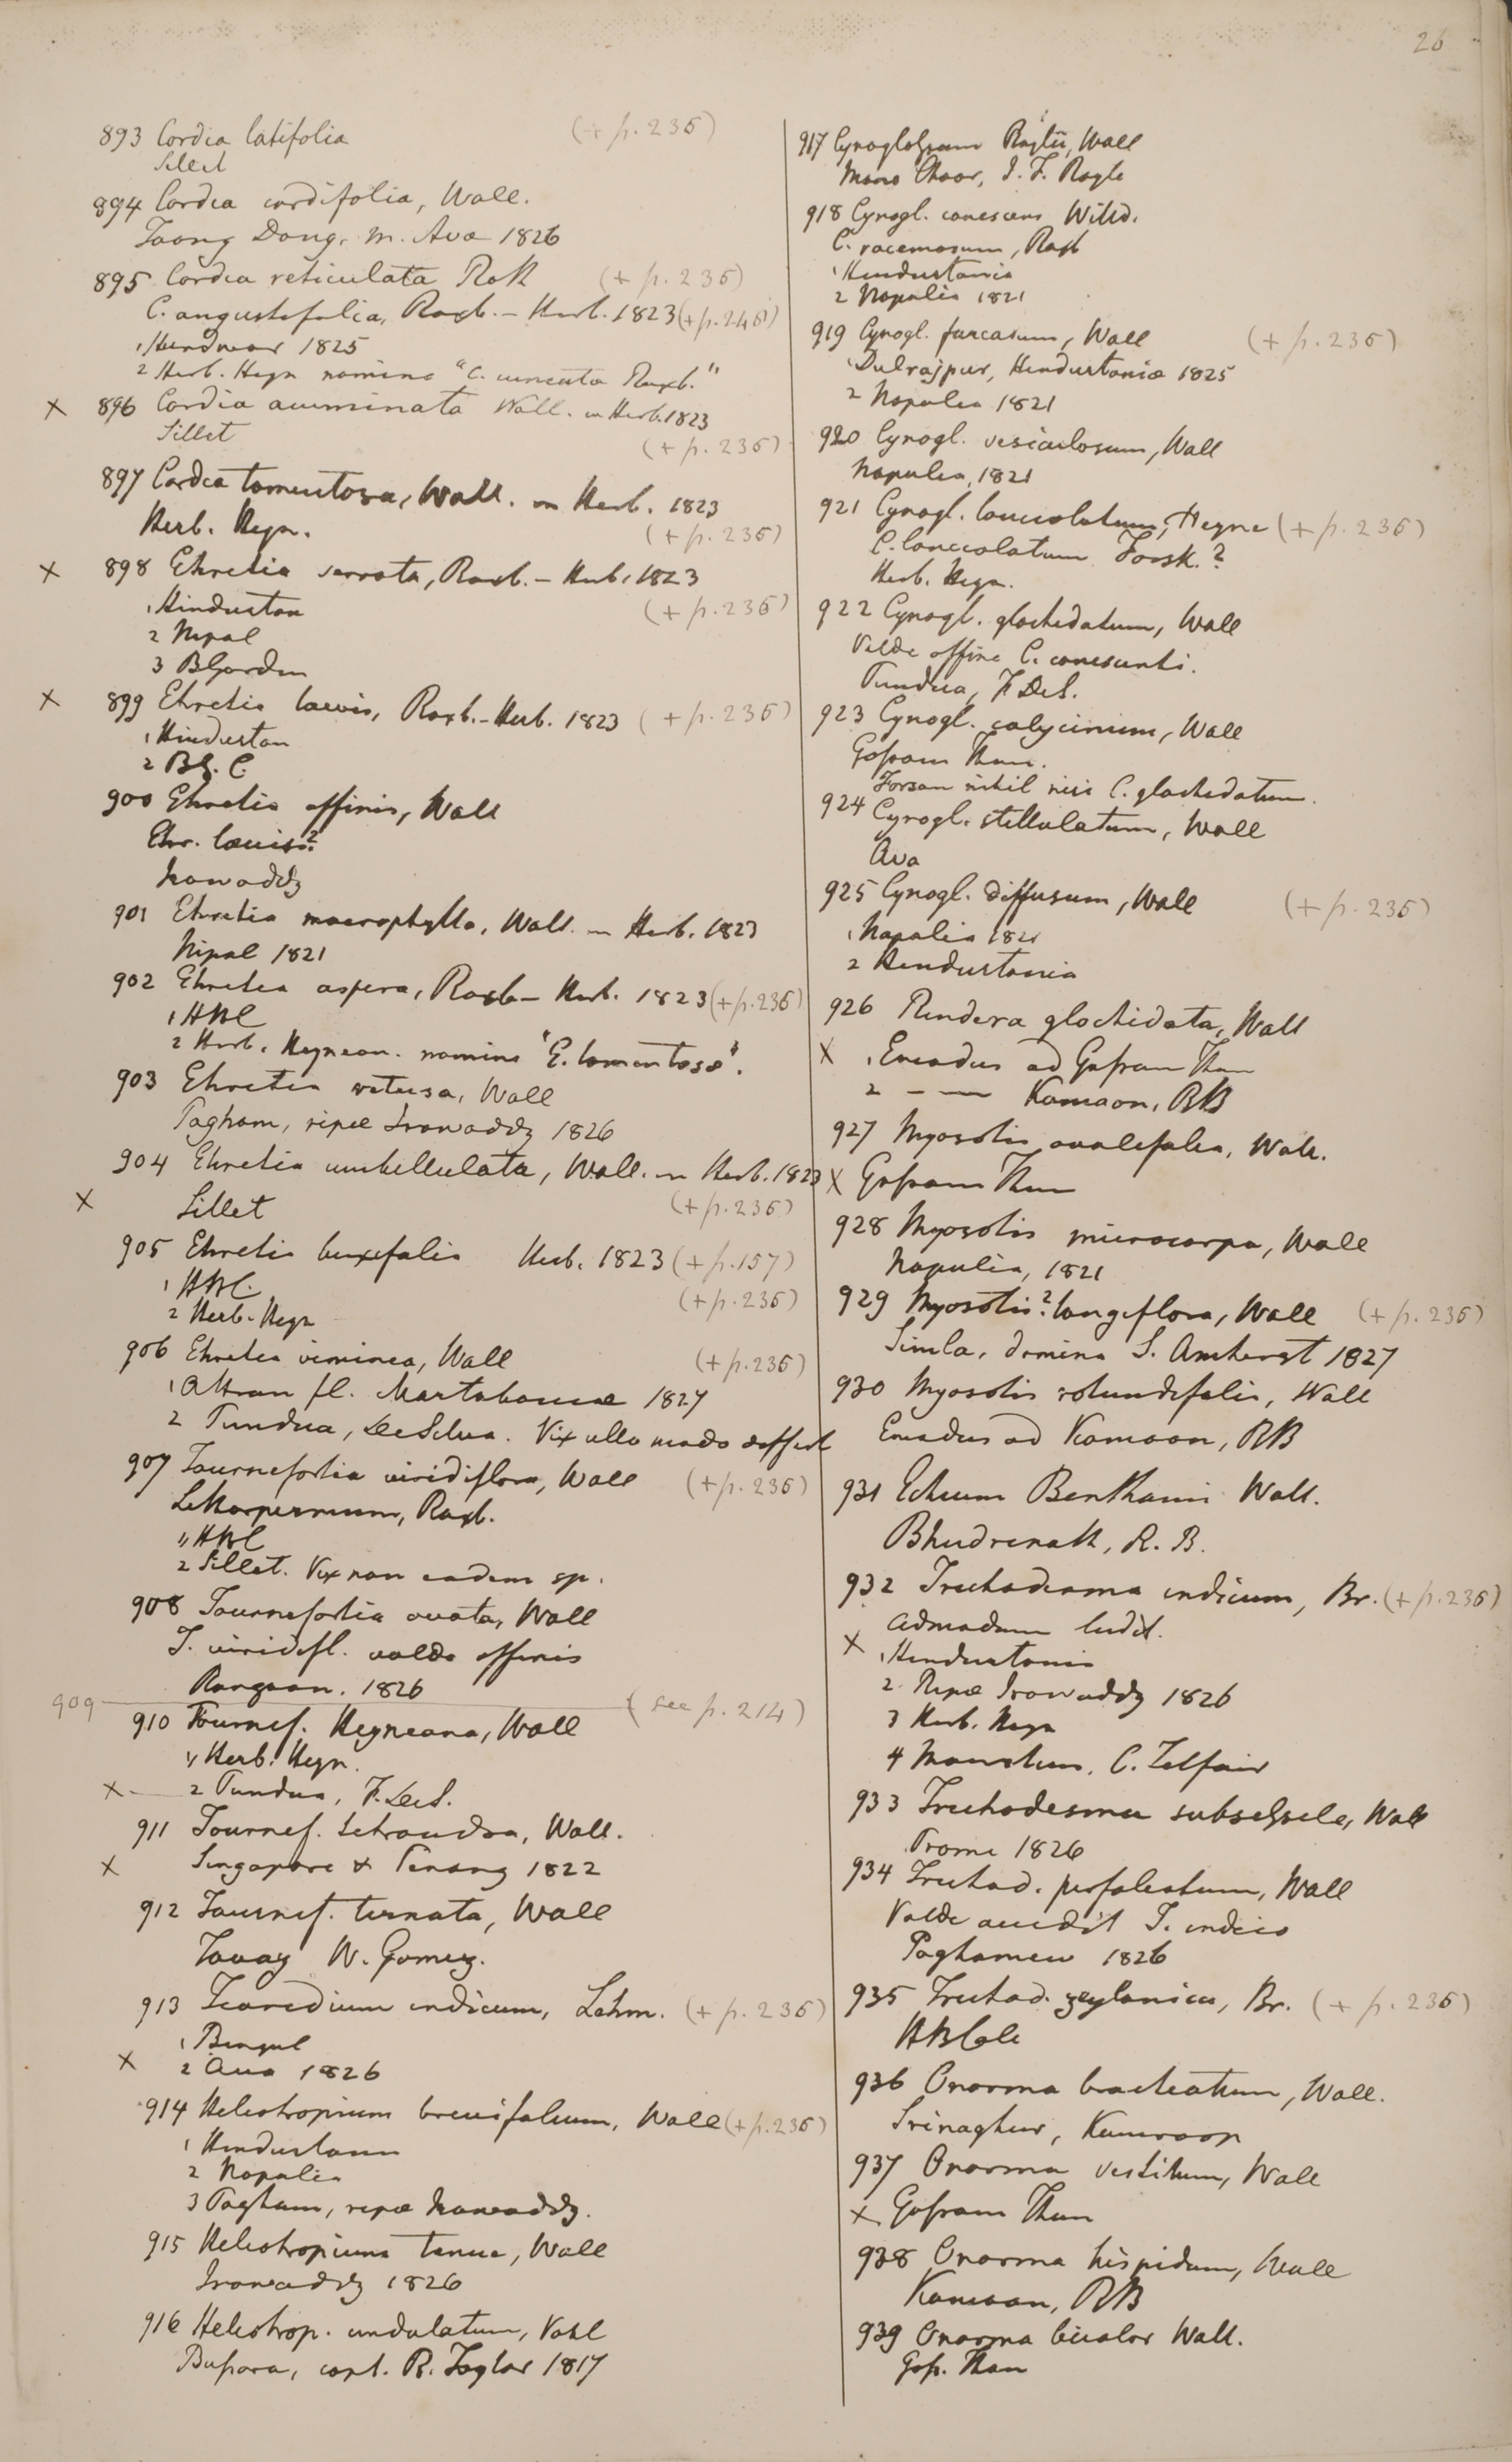 26
893 Cordia latifolia (+ p. 235)
Sillet
894 Cordia cordifolia, Wall.
Taong Dong, m. Ava 1826
895 Cordia reticulata Roth (+ p. 235)
C. angustifolia, Roxb. — Herb. 1823 (+ p. 245)
1 Hurdwar 1825
2 Herb. Heyn nomine "C. cuneata Roxb."
x 896 Cordia acuminata Wall. in Herb. 1823
Sillet (+ p. 235)
897 Cordia tomentosa, Wall. in Herb. 1823
Herb. Heyn. (+ p. 235)
x 898 Ehretia serrata, Roxb. — Herb. 1823
1 Hindustan (+ p. 235)
2 Nipal
3 B Garden
x 899 Ehretia laevis, Roxb. — Herb. 1823 (+ p. 235)
1 Hindustan
2 B.G. C.
900 Ehretia affinis, Wall
Ehr. laevis?
Irawaddy
901 Ehretia macrophylla, Wall. in Herb. 1823
Nipal 1821
902 Ehretia aspera, Roxb — Herb. 1823 (+ p. 235)
1 HBC
2 Herb. Heynean. nomine "E. tomentosa".
903 Ehretia retusa, Wall
Pagham, ripae Irawaddy 1826
904 Ehretia umbellulata, Wall. in Herb. 1823
x Sillet (+ p. 235)
905 Ehretia buxifolia Herb. 1823 (+ p. 157)
1 HBC. (+ p. 235)
2 Herb. Heyn
906 Ehretia viminea, Wall (+ p. 235)
1 Attran fl. Martabaniae 1827
2 Pundua, DeSilva. Vix ullo modo differt
907 Tournefortia viridiflora, Wall (+ p. 235)
Lithospermum, Roxb.
1 HBC
2 Sillet. Vix non eadem sp.
908 Tournefortia ovata, Wall
T. viridifl. valde affinis
Rangoon. 1826
909 (see p. 214)
910 Tournef. Heyneana, Wall
1 Herb. Heyn.
x 2 Pundua, F. DeS.
911 Tournef. tetrandra, Wall.
x Singapore & Penang 1822
912 Tournef. ternata, Wall
Tavoy W. Gomez.
913 Tiaridium indicum, Lehm. (+ p. 235)
1 Bengal
x 2 Ava 1826
914 Heliotropium brevifolium, Wall (+ p. 235)
1 Hindustan
2 Napalia
3 Pagham, ripae Irawaddy.
915 Heliotropium tenue, Wall
Irawaddy 1826
916 Heliotrop. undulatum, Vahl
capt. R. Taylor 1817
917 Cynoglossum Roylii, Wall
I. F. Royle
918 Cynogl. canescens Willd.
C. racemosum, Roxb
1 Hindustania
2 Napalia 1821
919 Cynogl. furcatum, Wall (+ p. 235)
1 Dulrajpur, Hindustaniae 1825
2 Napalia 1821
920 Cynogl. vesiculosum, Wall
Napalia, 1821
921 Cynogl. lanceolatum, Heyne (+ p. 235)
C. lanceolatum Forsk.?
Herb. Heyn.
922 Cynogl. glochidatum, Wall
Valde affine C. canescenti.
Pundua, F. DeS.
923 Cynogl. calycinum, Wall
Gosram Than.
Forsan nihil nisi C. glochidatum.
924 Cynogl. stellulatum, Wall
Ava
925 Cynogl. diffusum, Wall (+ p. 235)
1 Napalia 1821
2 Hindustania
926 Rindera glochidata, Wall
x 1 Emodus ad Gosram Than
2 — — Kamaon, RB
927 Myosotis ovalifolia, Wall.
x Gosram Than
928 Myosotis microcarpa, Wall
Napalia, 1821
929 Myosotis? longiflora, Wall (+ p. 235)
Simla, domina S. Amherst 1827
930 Myosotis rotundifolia, Wall
Emodus ad Kamaon, RB
931 Echium Benthami Wall.
Bhudrenath, R. B.
932 Trichodesma indicum, Br. (+ p. 235)
admodum ludit.
x 1 Hindustania
2 Ripae Irawaddy 1826
3 Herb. Heyn
4 Mauritius, C. Telfair
933 Trichodesma subsessile, Wall
Prome 1826
934 Trichod. perfoliatum, Wall
Valde accedit T. indico
Paghamew 1826
935 Trichod. zeylanica, Br. (+ p. 235)
HBCalc
936 Onosma bracteatum, Wall.
Srinaghur, Kamroop
937 Onosma vestitum, Wall
x Gosram Than
938 Onosma hispidum, Wall
Kamaon, RB
939 Onosma bicolor Wall.
Gos. Than